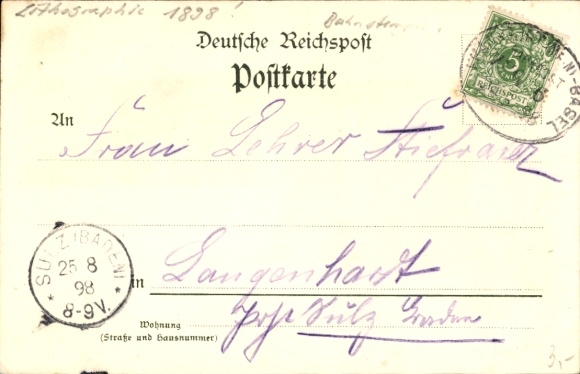 Lithographie 1898!
Bahnstempel
Deutsche Reichspost
Postkarte
5
PFENNIG
REICHSPOST
BASEL
An
Frau Lehrer
SULZ (BADEN)
25 8
98
8-9V.
in Langenhardt
Post Sulz Baden
Wohnung
(Straße und Hausnummer)
3,-